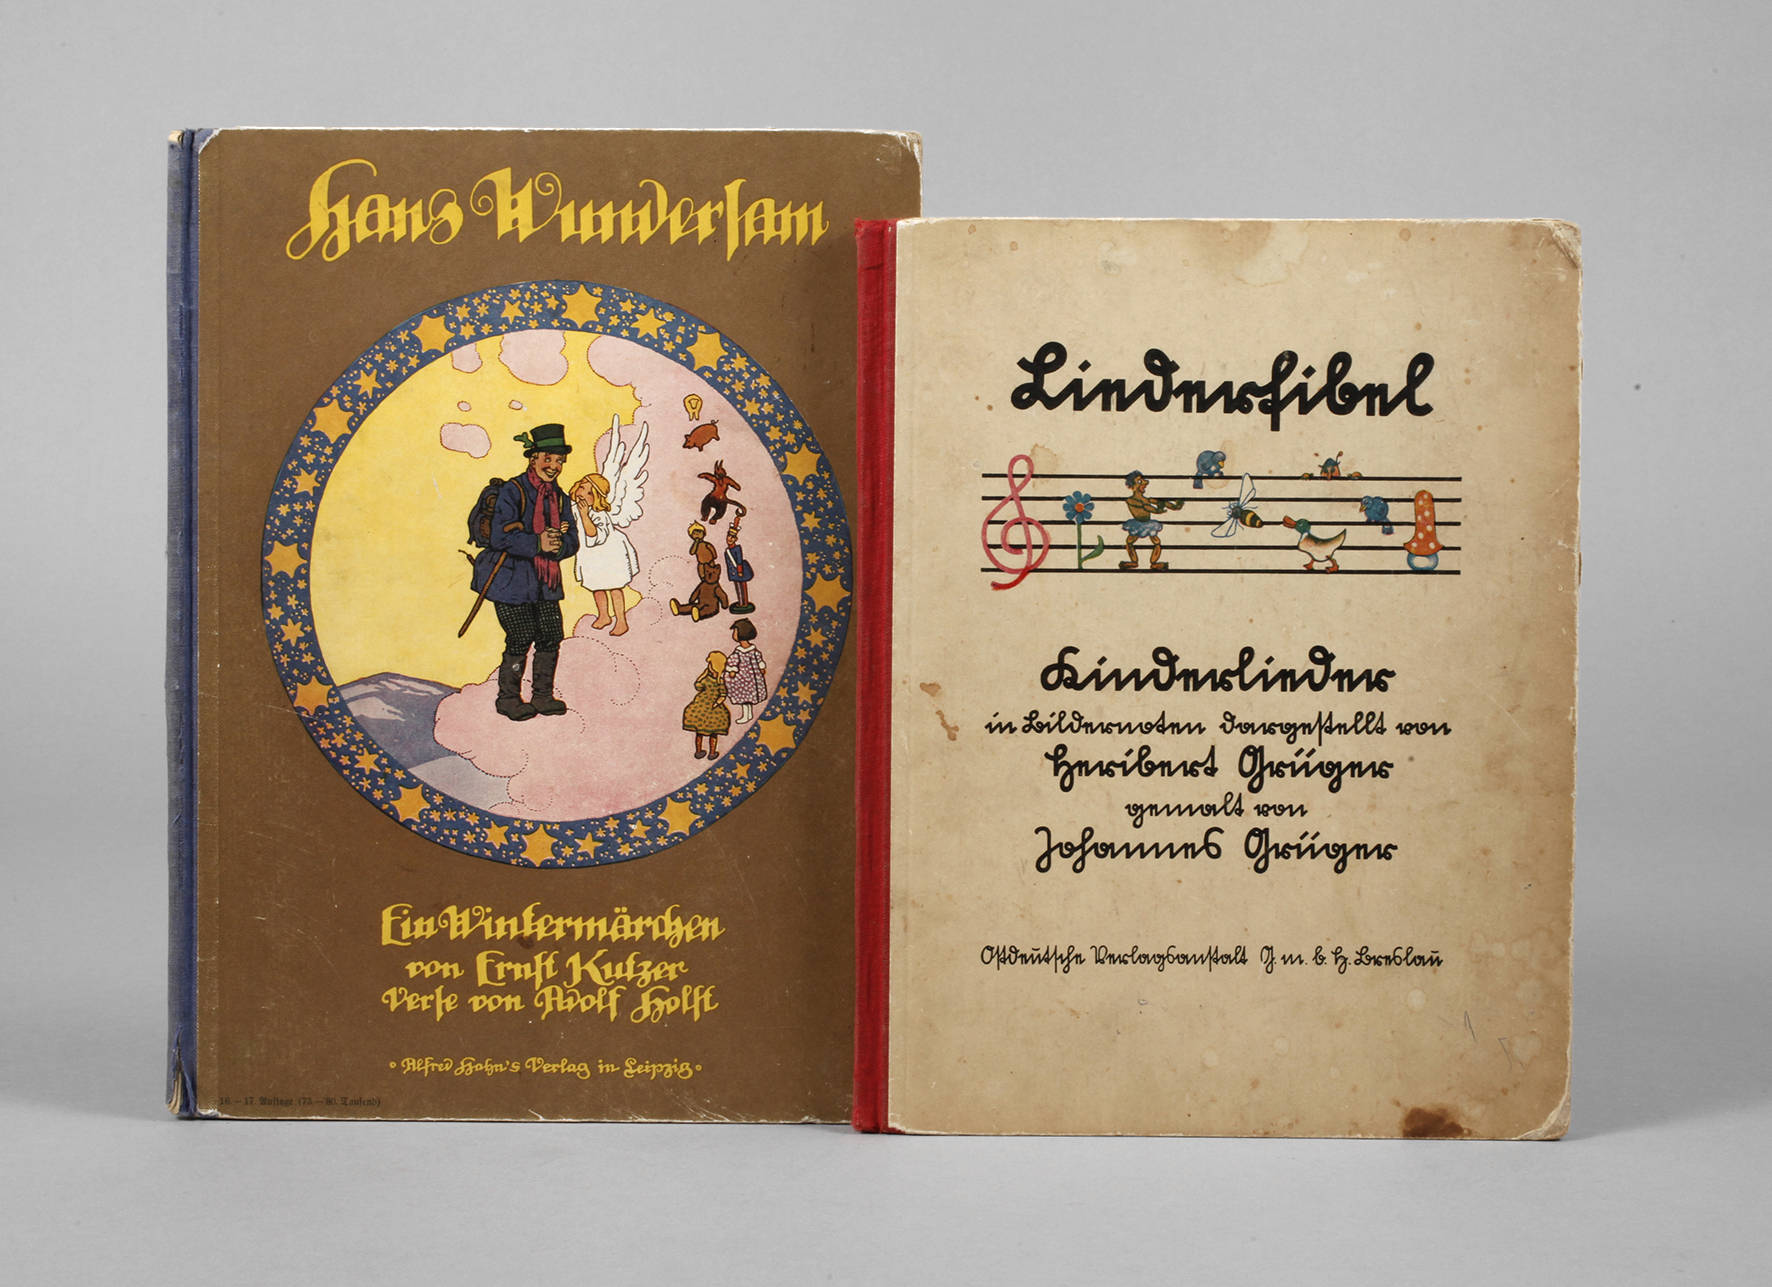 Hans Wundersam
Ein Wintermärchen
von Ernst Kutzer
Verse von Adolf Holst
Alfred Hahn's Verlag in Leipzig
16.-17. Auflage (73.-80. Tausend)
Liederfibel
Kinderlieder
in Bildernoten dargestellt von
Heribert Grüger
gemalt von
Johannes Grüger
Ostdeutsche Verlagsanstalt G. m. b. H. Breslau